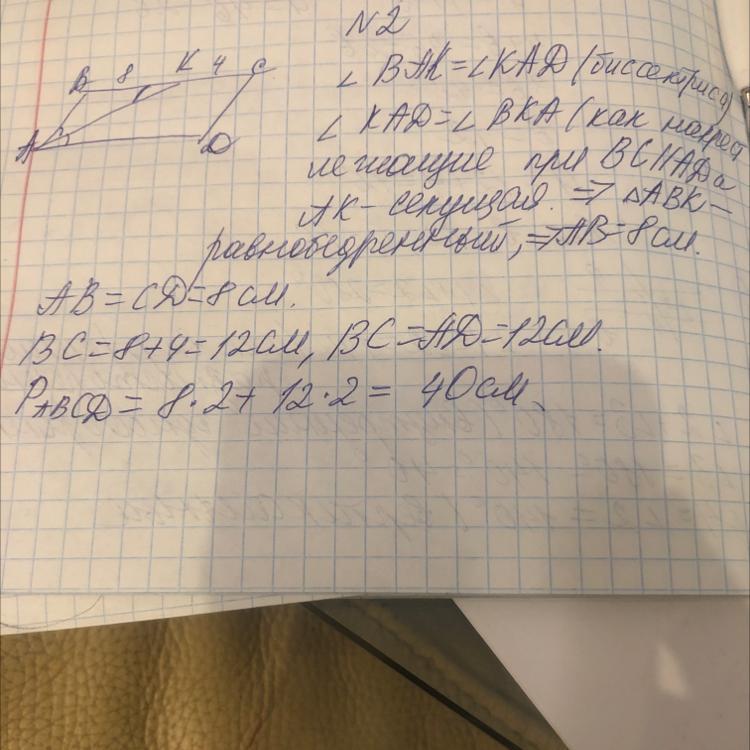 N2
B 8 K 4 C
A D
∠ BAK = ∠ KAD (биссектриса)
∠ KAD = ∠ BKA (как накрест
лежащие при BC || AD а
AK - секущая. ⇒ △ABK -
равнобедренный, ⇒ AB = 8 см.
AB = CD = 8 см.
BC = 8+4 = 12 см, BC = AD = 12 см.
PABCD = 8·2 + 12·2 = 40 см.